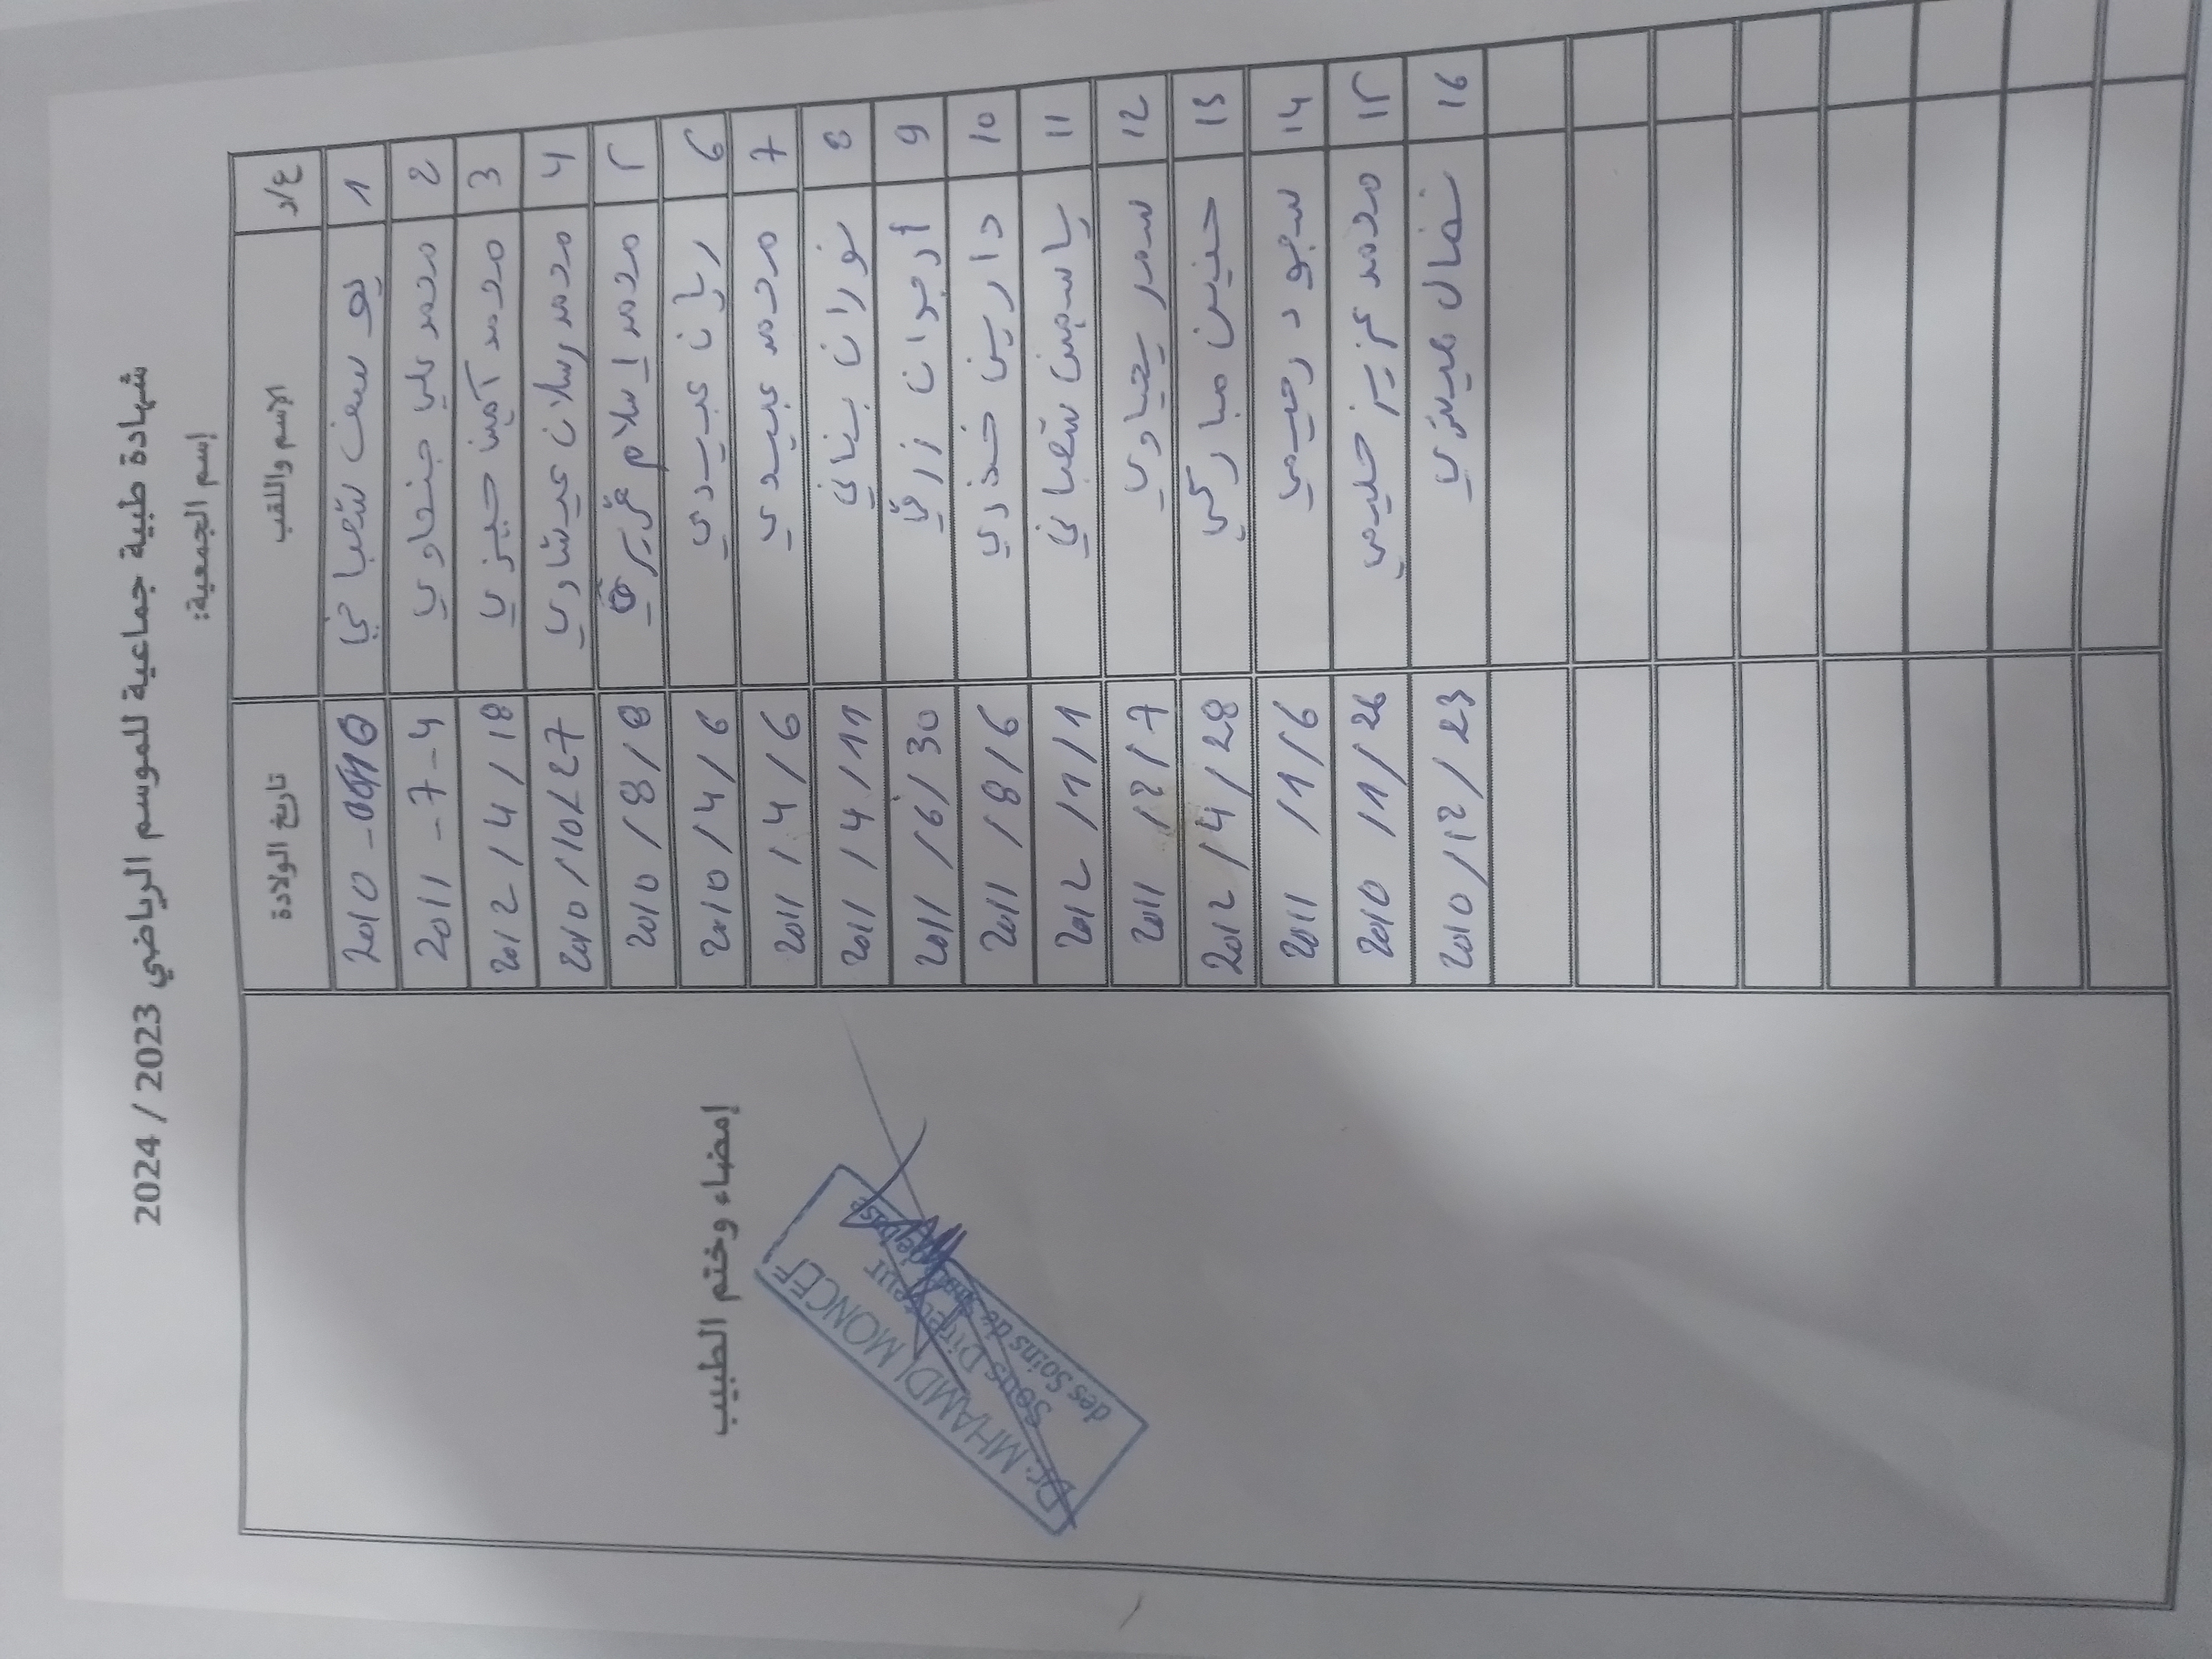 شهادة طبية جماعية للموسم الرياضي 2023 / 2024
إسم الجمعية:
ع/د الإسم واللقب تاريخ الولادة
1 يوسف شعباني 2010
2 محمد علي جنحاوي 2011 - 7 - 4
3 محمد أمين حيزي 2012 / 4 / 18
4 محمد رسلان عيشاوي 2010 / 10 / 27
5 محمد إسلام 2010 / 8 / 8
6 ريان عبيدي 2010 / 4 / 6
7 محمد عبيدي 2011 / 4 / 6
8 نوران بناني 2011 / 4 / 11
9 أرجوان زرقي 2011 / 6 / 30
10 دارين خذري 2011 / 8 / 6
11 ياسمين شعباني 2012 / 1 / 1
12 سمر يحياوي 2011 / 2 / 7
13 حنين مباركي 2012 / 4 / 28
14 سجود رحيمي 2011 / 1 / 6
15 محمد عزيز حليمي 2010 / 1 / 26
16 نضال ميساوي 2010 / 12 / 23
إمضاء وختم الطبيب
Dr. MHAMDI MONCEF
Sous Directeur
des Soins de Santé de Base